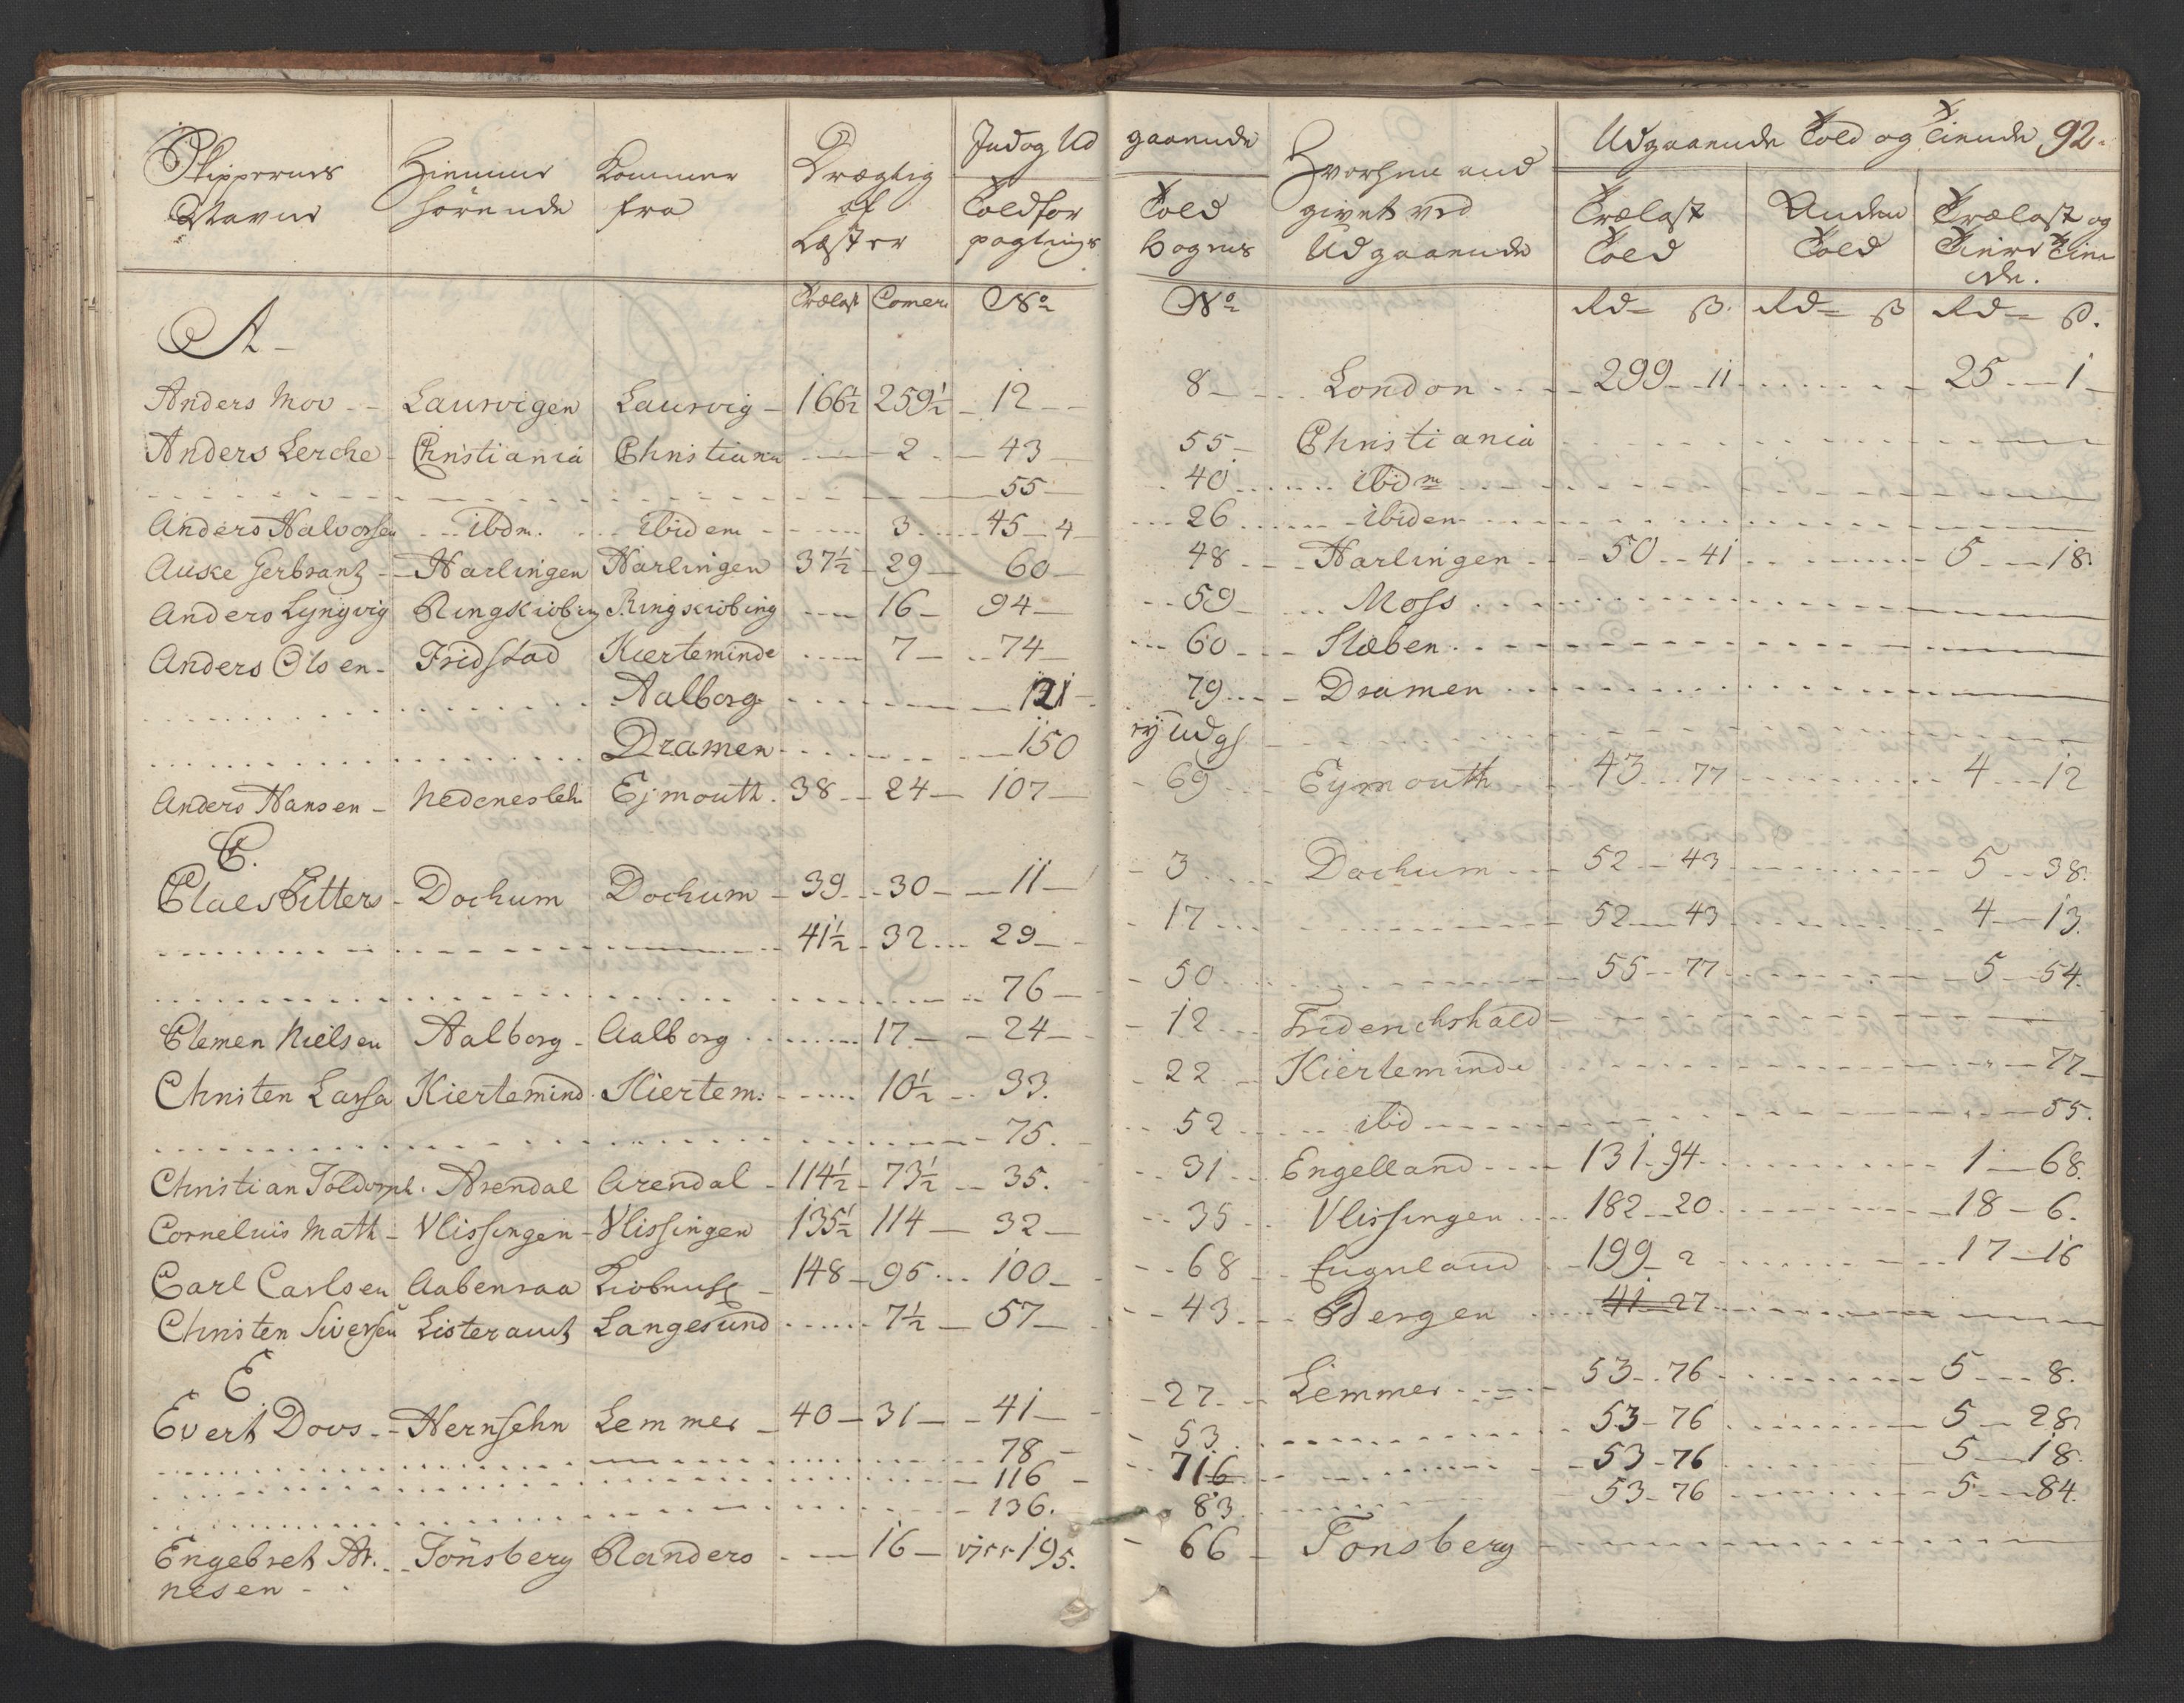 Skippernes Hiemme Kommer Drægtig Ind og Ud gaaende Hvorhen an Udgaaende Told og Tiende 92.
Navne hörende fra af Toldfor Told givet ved Trælast Anden Trælast og
Læster pagtnings Bogens Udgaaende Told Told Tiære Tien
de.
Trælast Comerc No No Rd ß. Rd ß Rd ß.
A
Anders Mov Laurvigen Laurvig 166½ 259½ 12 8 London 299 11 25 1
Anders Lerche Christiania Christiania 2 43 55 Christiania
55 40 ibidm
Anders Halvorsen ibdm. ibidem 3 45 4 26 ibidem
Auske Gerbrantz Harlingen Harlingen 37½ 29 60 48 Harlingen 50 41 5 18
Anders Lyngvig Ringskiobing Ringskiobing 16 94 59 Moss
Anders Olsen Fridstad Kierteminde 7 74 60 Slæben
Aalborg 121 79 Dramen
Dramen 150 ej Udg
Anders Hansen Nedenesleh Ejmouth 38 24 107 69 Eymouth 43 77 4 12
C.
Claes Fitters Dochum Dochum 39 30 11 3 Dochum 52 43 5 38
41½ 32 29 17 52 43 4 13
76 50 55 77 5 54
Clemen Nielsen Aalborg Aalborg 17 24 12 Friderichshald
Christen Lassen Kiertemind Kiertem: 10½ 33. 22 Kierteminde 77
75. 52 ibid 55.
Christian Toldorph. Arendal Arendal 114½ 73½ 35. 31 Engelland 131 94 1 68.
Cornelius Math Vlissingen Vlissingen 135½ 114 32 35 Vlissingen 182 20 18 6.
Carl Carlsen Aabenraa Kiobenh 148 95 100 68 Engeland 199 2 17 16
Christen Siversen Listeramt Langesund 7½ 57 43 Bergen 41 27
E
Evert Dovs Hernsehn Lemmer 40 31 41 27 Lemmer 53 76 5 8.
78 53 53 76 5 28
116 716 53 76 5 18
136. 83 53 76 5 84.
Engebret Ar. Tönsberg Randers 16 195. 66 Tonsberg
nesen